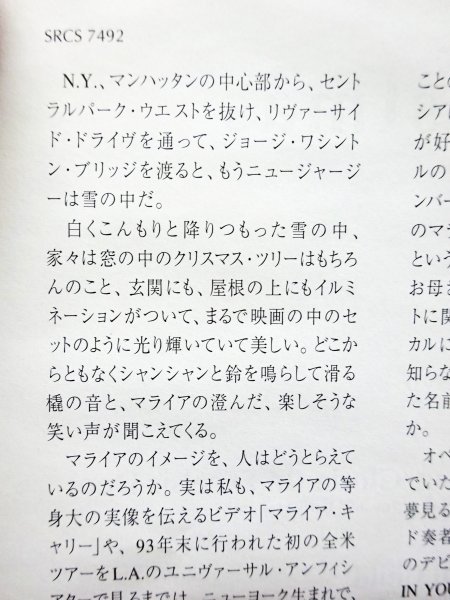 SRCS 7492
N.Y.、マンハッタンの中心部から、セント
ラルパーク・ウエストを抜け、リヴァーサイ
ド・ドライヴを通って、ジョージ・ワシント
ン・ブリッジを渡ると、もうニュージャージ
ーは雪の中だ。
白くこんもりと降りつもった雪の中、
家々は窓の中のクリスマス・ツリーはもちろ
んのこと、玄関にも、屋根の上にもイルミ
ネーションがついて、まるで映画の中のセ
ットのように光り輝いていて美しい。どこか
らともなくシャンシャンと鈴を鳴らして滑る
橇の音と、マライアの澄んだ、楽しそうな
笑い声が聞こえてくる。
マライアのイメージを、人はどうとらえて
いるのだろうか。実は私も、マライアの等
身大の実像を伝えるビデオ「マライア・キ
ャリー」や、93年末に行われた初の全米
ツアーをL.A.のユニヴァーサル・アンフィシ
アターで見るまでは、ニューヨーク生まれで、
ことの
シアに
が好
ルの
ンバー
のマラ
という
お母さ
トに関
カルに
知らな
た名前
か。
オペ
でいた
夢見る
ド奏者
のデビ
IN YOU